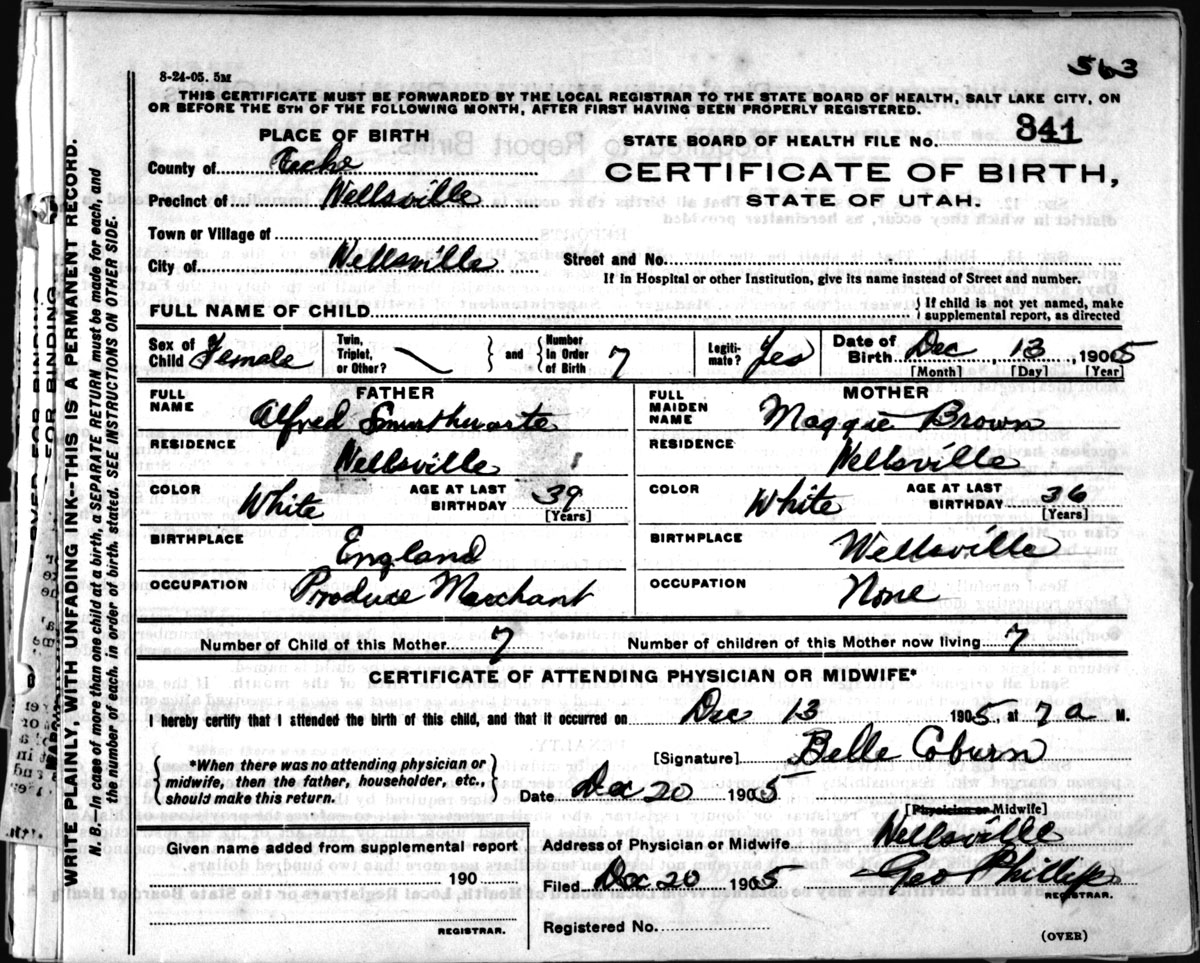 563
8-24-05. 5M
THIS CERTIFICATE MUST BE FORWARDED BY THE LOCAL REGISTRAR TO THE STATE BOARD OF HEALTH, SALT LAKE CITY, ON
OR BEFORE THE 5TH OF THE FOLLOWING MONTH, AFTER FIRST HAVING BEEN PROPERLY REGISTERED.
PLACE OF BIRTH
County of Cache
Precinct of Wellsville
Town or Village of
City of Wellsville
STATE BOARD OF HEALTH FILE No. 841
CERTIFICATE OF BIRTH,
STATE OF UTAH.
Street and No.
If in Hospital or other Institution, give its name instead of Street and number.
FULL NAME OF CHILD
{ If child is not yet named, make
supplemental report, as directed
Sex of Child Female
Twin, Triplet, or Other?
and
Number in Order of Birth 7
Legiti-mate? Yes
Date of Birth Dec 13, 1905
[Month] [Day] [Year]
FATHER
FULL NAME Alfred Smurthwaite
RESIDENCE Wellsville
COLOR White
AGE AT LAST BIRTHDAY 39
[Years]
BIRTHPLACE England
OCCUPATION Produce Merchant
MOTHER
FULL MAIDEN NAME Maggie Brown
RESIDENCE Wellsville
COLOR White
AGE AT LAST BIRTHDAY 36
[Years]
BIRTHPLACE Wellsville
OCCUPATION None
Number of Child of this Mother 7
Number of children of this Mother now living 7
CERTIFICATE OF ATTENDING PHYSICIAN OR MIDWIFE*
I hereby certify that I attended the birth of this child, and that it occurred on Dec 13 1905, at 7 a M.
{ *When there was no attending physician or
midwife, then the father, householder, etc.,
should make this return. }
[Signature] Belle Coburn
Date Dec 20 1905
[Physician or Midwife]
Given name added from supplemental report
190
REGISTRAR.
Address of Physician or Midwife Wellsville
Filed Dec 20 1905 Geo Phillips
REGISTRAR.
Registered No.
(OVER)
WRITE PLAINLY, WITH UNFADING INK--THIS IS A PERMANENT RECORD.
N. B.--In case of more than one child at a birth, a SEPARATE RETURN must be made for each, and
the number of each, in order of birth, stated. SEE INSTRUCTIONS ON OTHER SIDE.